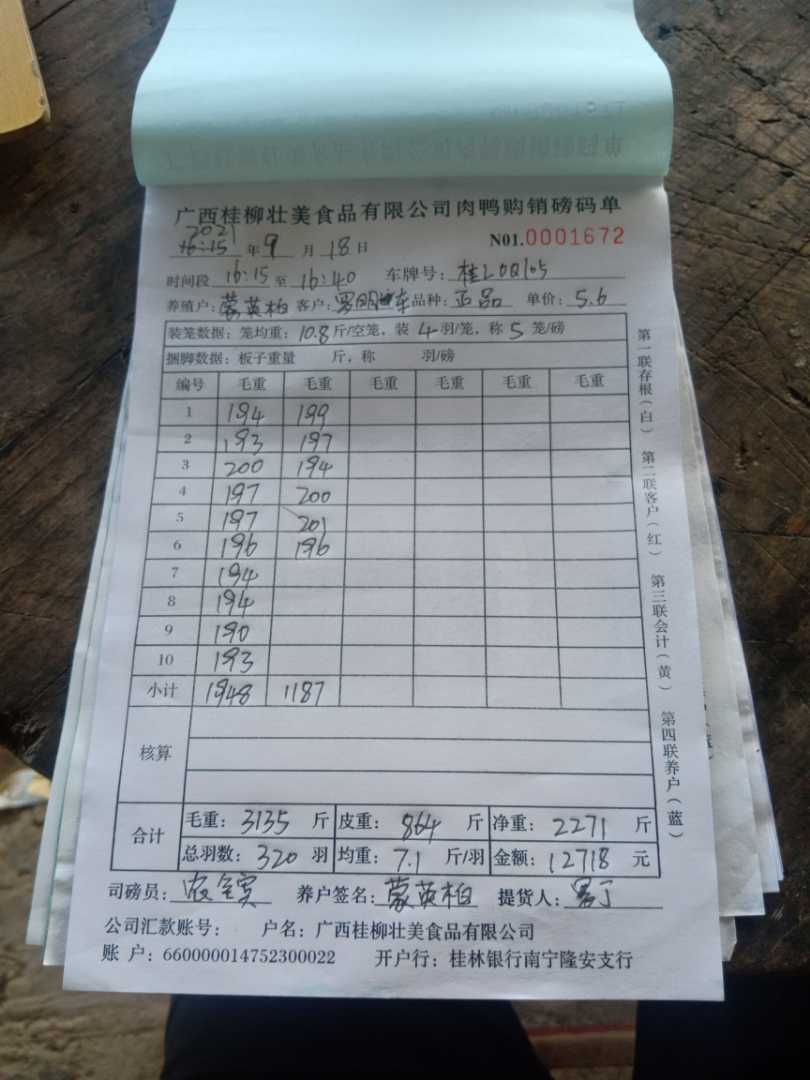 广西桂柳壮美食品有限公司肉鸭购销磅码单
2021
16:15 年 9 月 18 日 N01.0001672
时间段 16:15 至 16:40 车牌号: 桂L0Q105
养殖户: 蒙英柏 客户: 罗明 车 品种: 正品 单价: 5.6
装笼数据: 笼均重: 10.8 斤/空笼, 装 4 羽/笼, 称 5 笼/磅
捆脚数据: 板子重量 斤, 称 羽/磅
编号 毛重 毛重 毛重 毛重 毛重 毛重
1 194 199
2 193 197
3 200 194
4 197 200
5 197 201
6 196 196
7 194
8 194
9 190
10 193
小计 1948 1187
核算
合计 毛重: 3135 斤 皮重: 864 斤 净重: 2271 斤
总羽数: 320 羽 均重: 7.1 斤/羽 金额: 12718 元
司磅员: 农全宾 养户签名: 蒙英柏 提货人:
公司汇款账号: 户名: 广西桂柳壮美食品有限公司
账 户: 660000014752300022 开户行: 桂林银行南宁隆安支行
第一联存根(白) 第二联客户(红) 第三联会计(黄) 第四联养户(蓝)